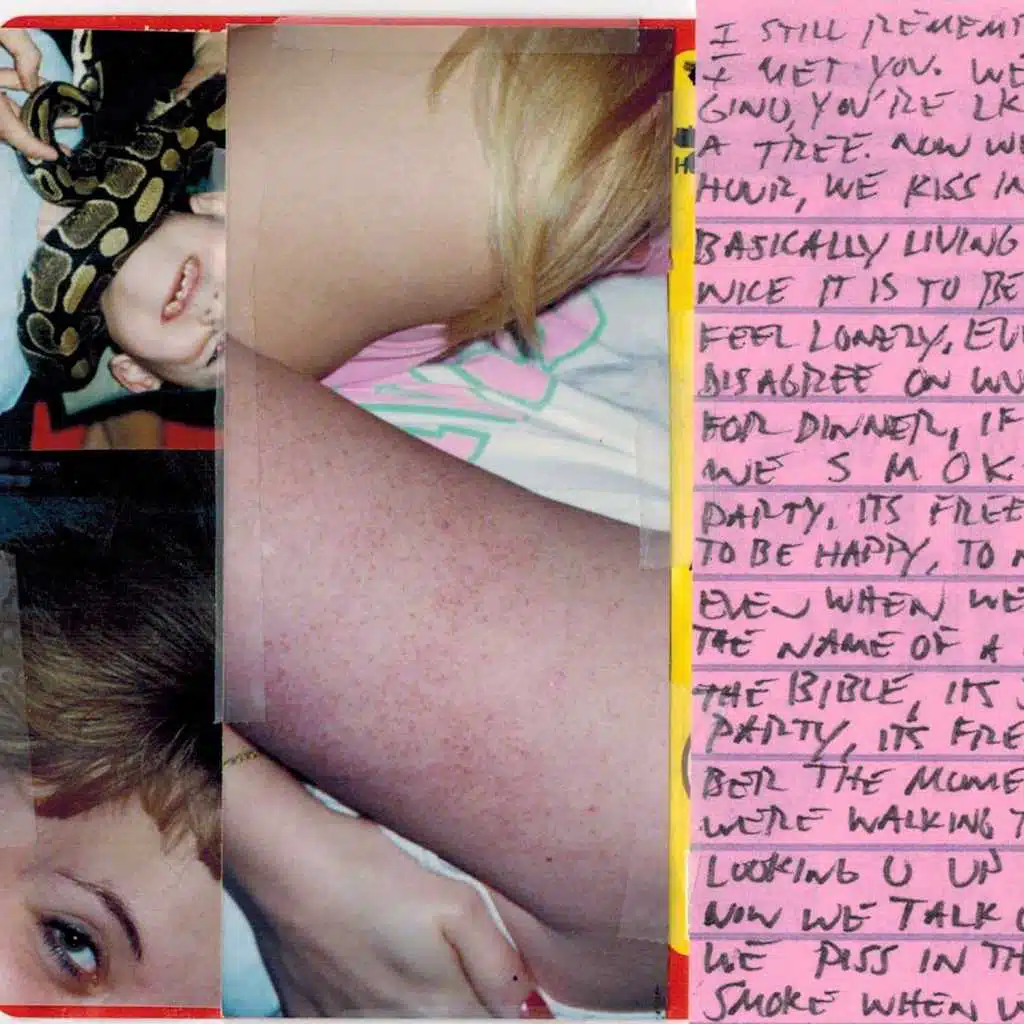 I STILL REMEM
I MET YOU. WE
GINO, YOU'RE LIK
A TREE. NOW WE
HOUR, WE KISS IN
BASICALLY LIVING
NICE IT IS TO BE
FEEL LONELY, EVE
DISAGREE ON WH
FOR DINNER, IF
WE SMOK
PARTY, ITS FREE
TO BE HAPPY, TO
EVEN WHEN WE
THE NAME OF A
THE BIBLE, ITS
PARTY, ITS FRE
BER THE MOME
WE'RE WALKING T
LOOKING U UP
NOW WE TALK
WE PISS IN TH
SMOKE WHEN W